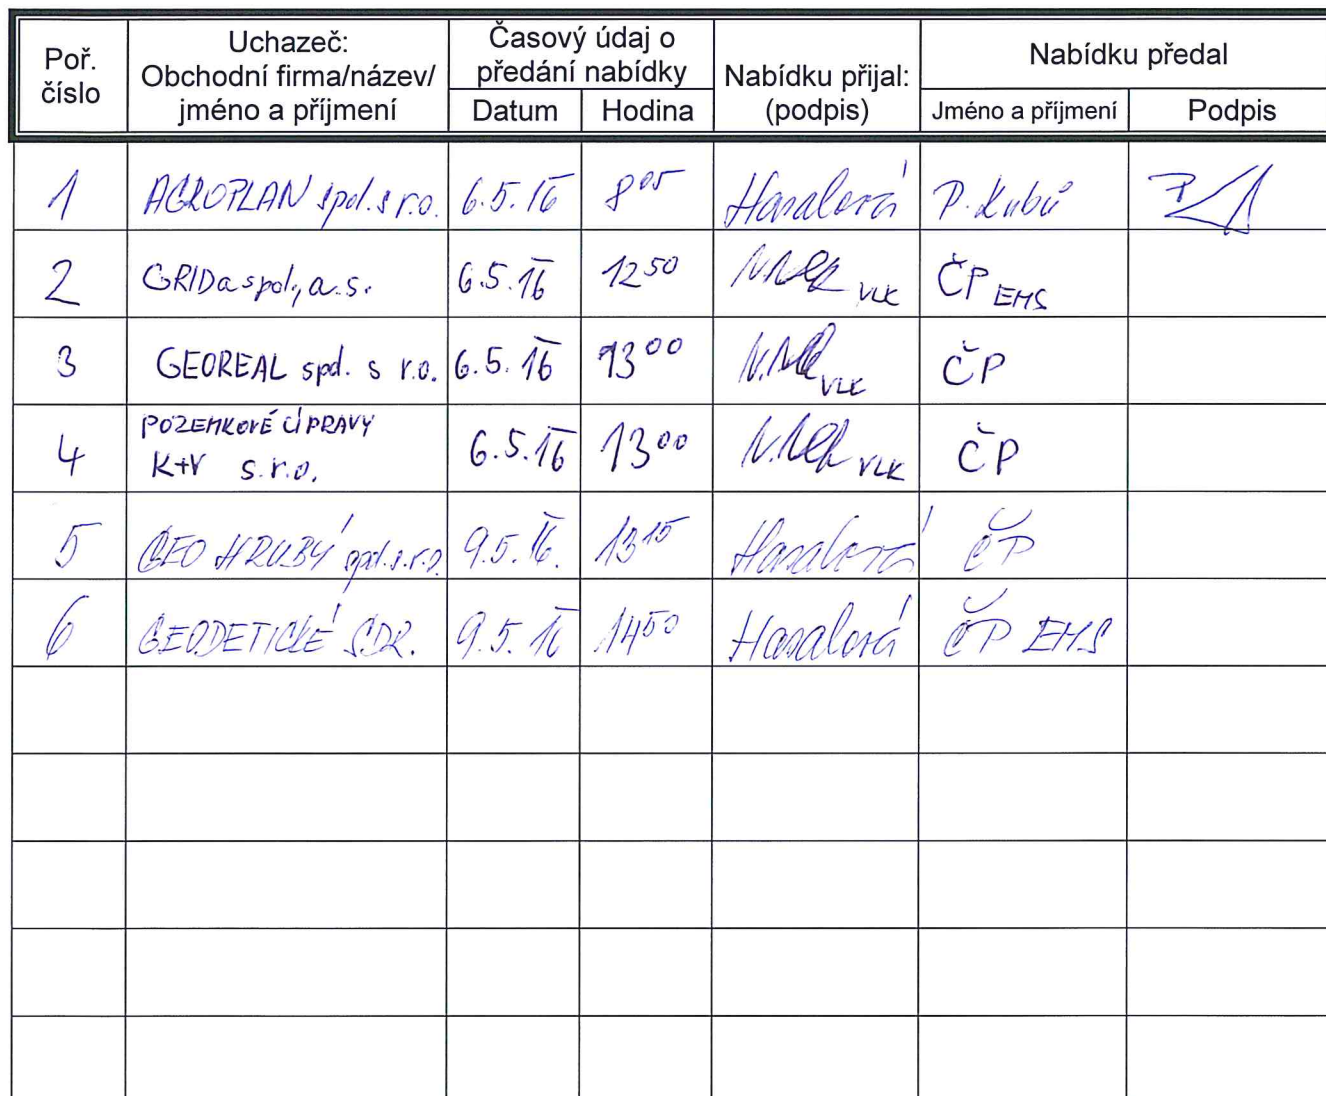 Poř. číslo
Uchazeč:
Obchodní firma/název/
jméno a příjmení
Časový údaj o
předání nabídky
Datum Hodina
Nabídku přijal:
(podpis)
Nabídku předal
Jméno a příjmení Podpis
1 AGROPLAN spol. s r.o. 6.5.16 8 05 Hasalová P. Kubů
2 GRIDa spol., a.s. 6.5.16 12 50 VLK ČP EMS
3 GEOREAL spol. s r.o. 6.5.16 13 00 VLK ČP
POZEMKOVÉ ÚPRAVY
4 K+V s.r.o. 6.5.16 13 00 VLK ČP
5 GEO HRUBÝ spol. s.r.o. 9.5.16. 13 15 Hasalová ČP
6 GEODETICKÉ SDR. 9.5.16 14 50 Hasalová ČP EMS